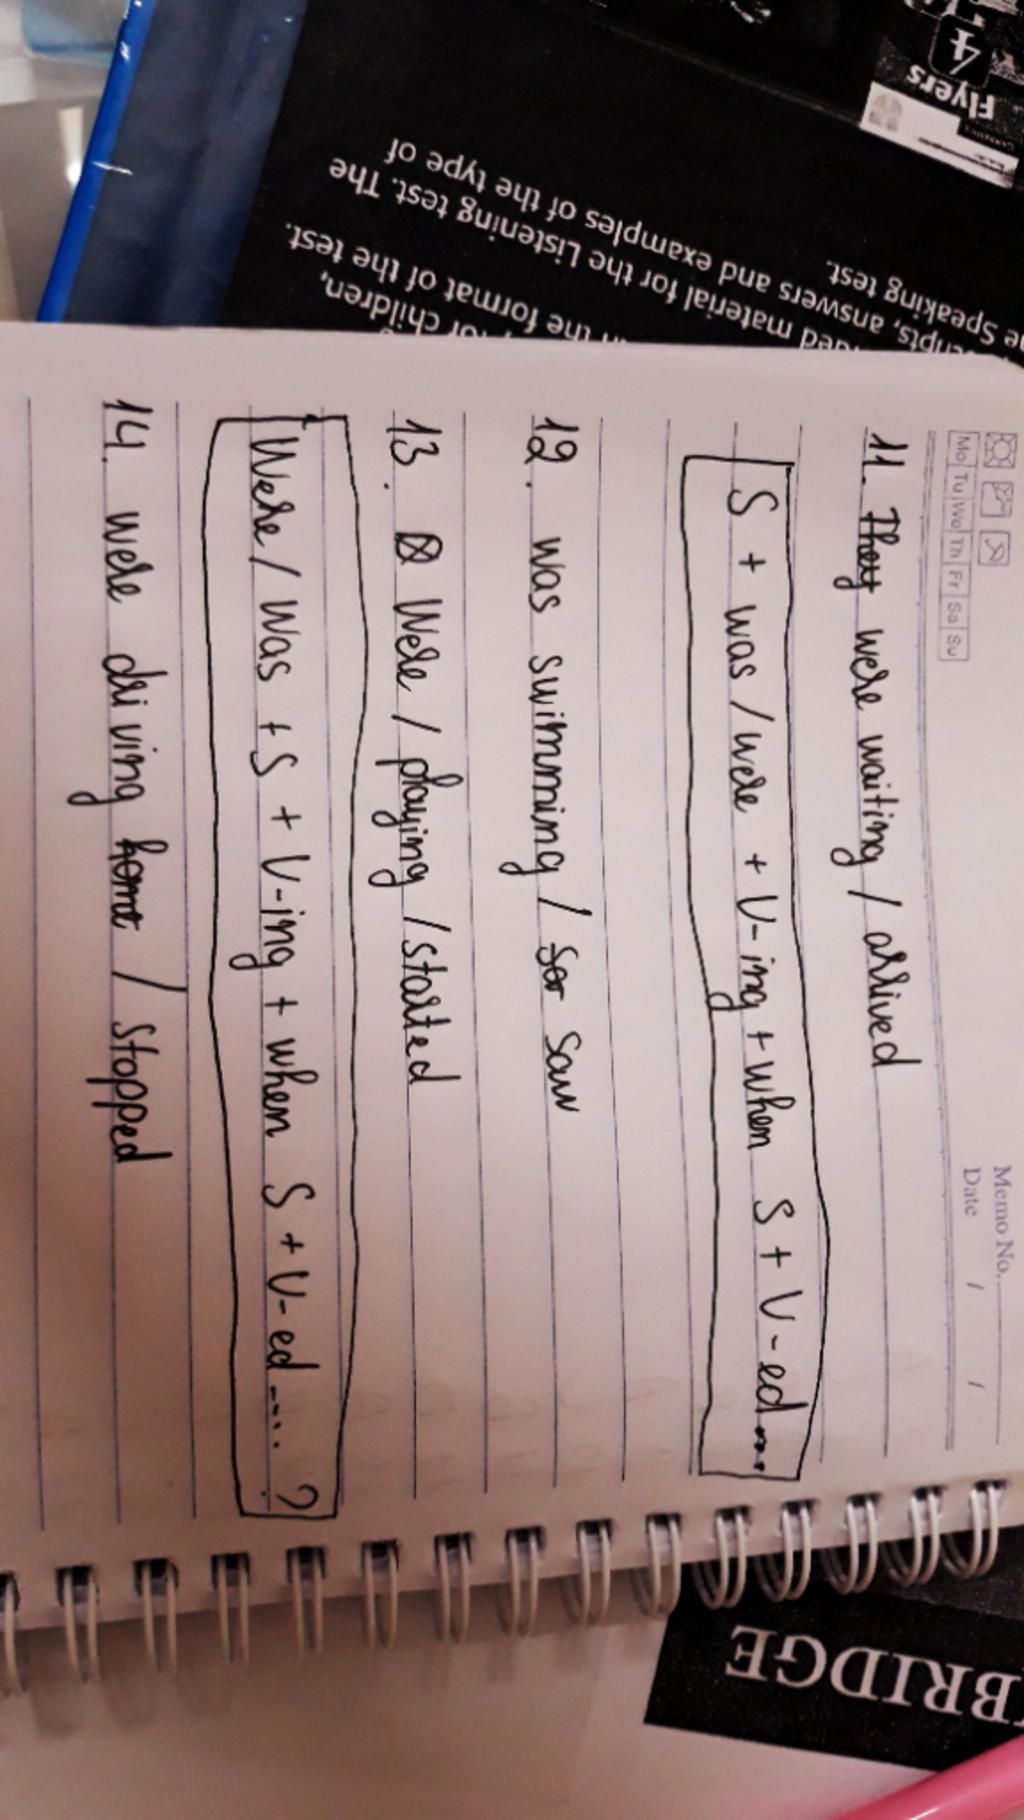 Memo No.
Date / /
Mo Tu We Th Fr Sa Su
11. They were waiting / arrived
S + was / were + V-ing + when S + V-ed...
12. was swimming / sar saw
13. Were / playing / started
Were / Was + S + V-ing + when S + V-ed....?
14. were driving home / stopped
for children,
the format of the test.
material for the Listening test. The
answers and examples of the type of
Speaking test.
Flyers
4
BRIDGE